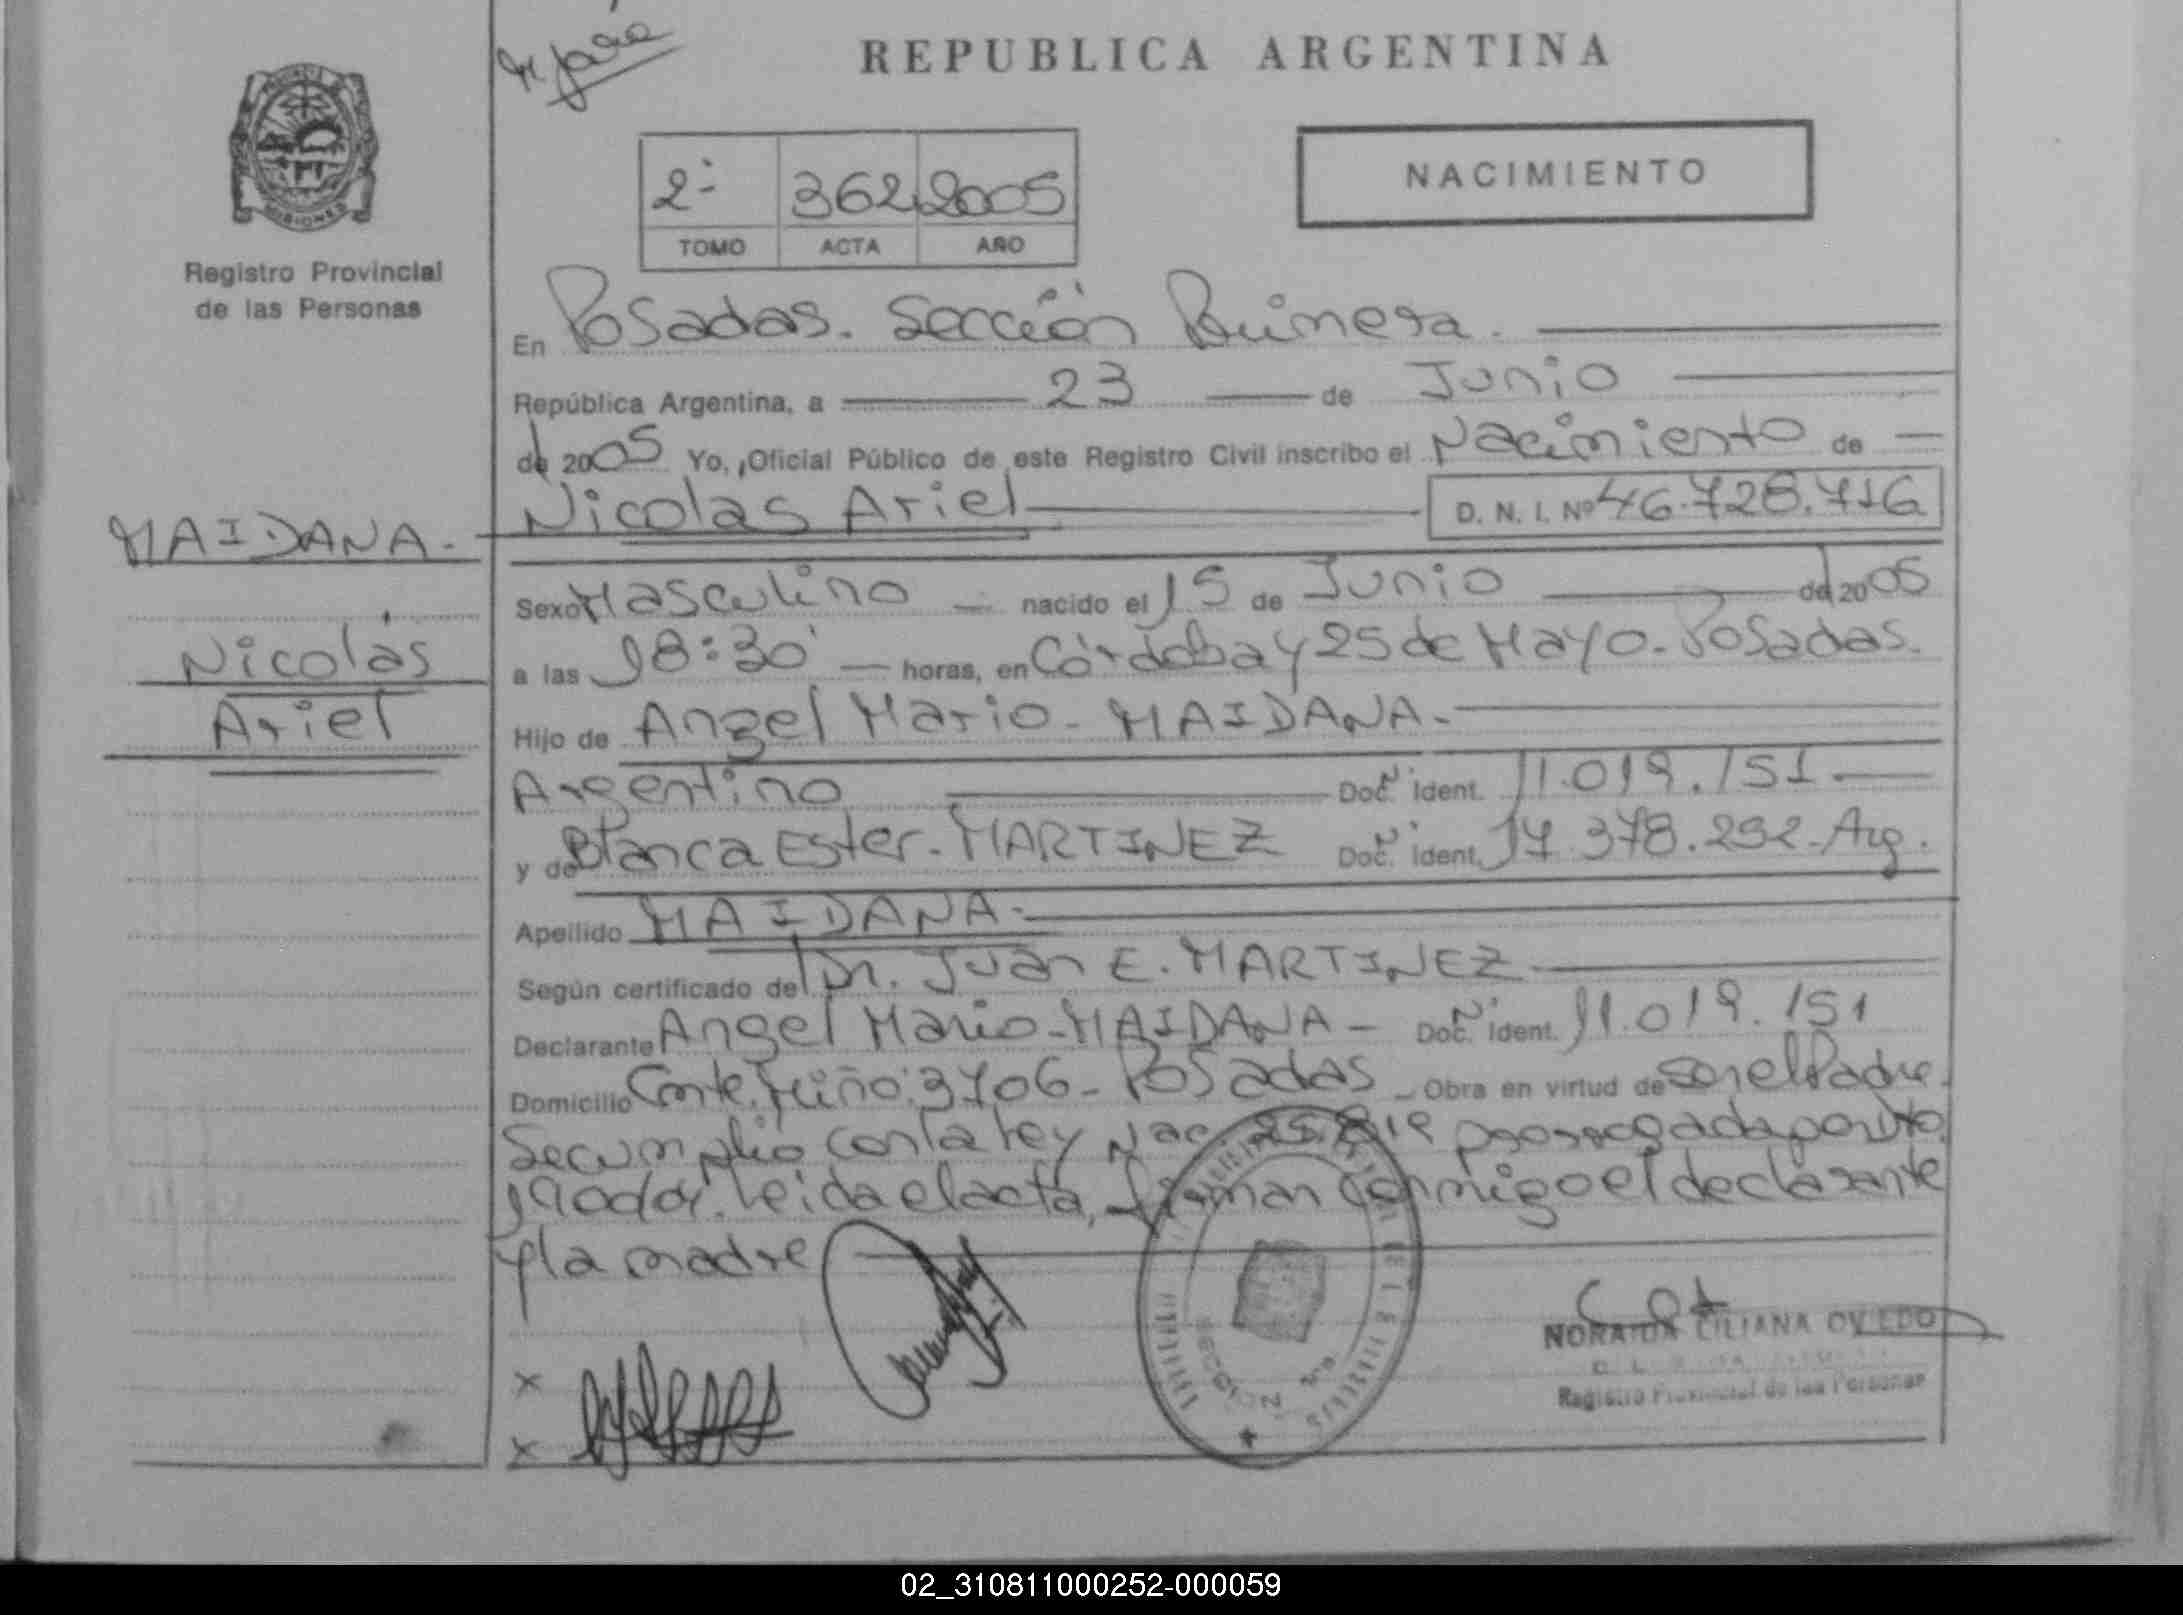 REPUBLICA ARGENTINA
NACIMIENTO
2º 362 2005
TOMO ACTA AÑO
MISIONES
Registro Provincial
de las Personas
En Posadas. Sección Primera.
República Argentina, a 23 de Junio
de 2005 Yo, Oficial Público de este Registro Civil inscribo el Nacimiento de
Nicolas Ariel D. N. I. Nº 46.728.716
MAIDANA.
Nicolás
Ariel
Sexo Masculino nacido el 15 de Junio de 2005
a las 18:30 horas, en Córdoba y 25 de Mayo. Posadas.
Hijo de Angel Mario - MAIDANA.
Argentino Doc. Ident. 11.019.151
y de Blanca Ester. MARTINEZ Doc. Ident. 17.378.292 - Arg.
Apellido MAIDANA.
Según certificado del Dr. Juan E. MARTINEZ
Declarante Angel Mario - MAIDANA - Doc. Ident. 11.019.151
Domicilio Conte. Miño: 3706 - Posadas Obra en virtud de ser el Padre.
Se cumplio con la Ley Nac. 25.819 prorrogada por Dto.
190/04. Leida el acta, firman conmigo el declarante
y la madre
NORAIDA LILIANA OVIEDO
Registro Provincial de las Personas
x
x
02_310811000252-000059